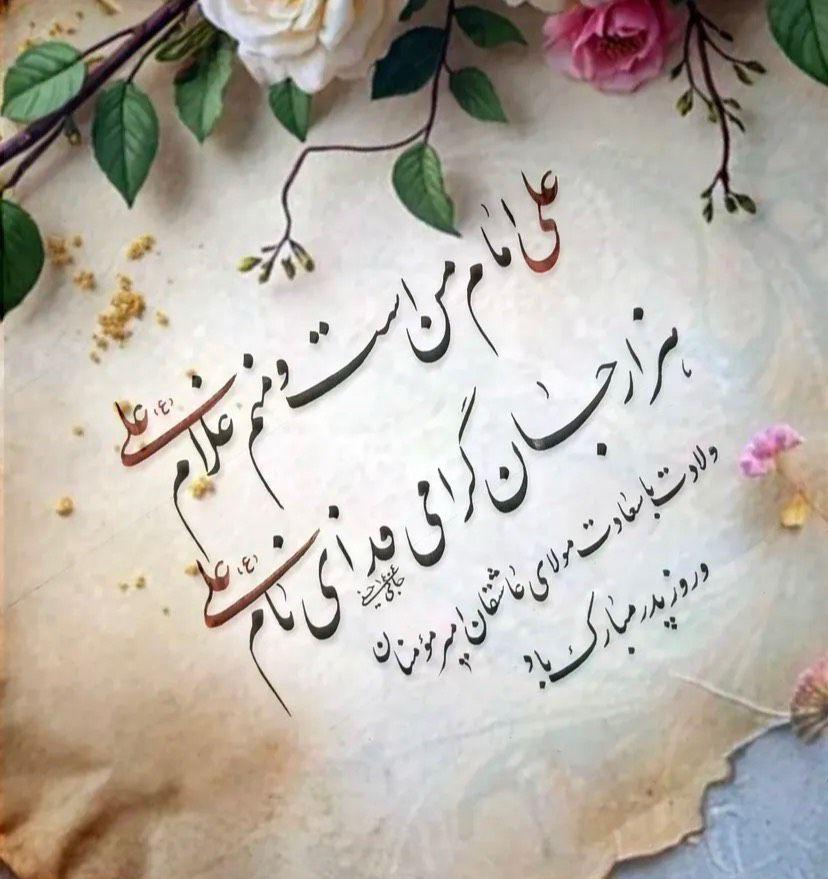 علی امام من است و منم غلام علی (ع)
هزار جان گرامی فدای نام علی (ع)
ولادت با سعادت مولای عاشقان امیر مؤمنان
و روز پدر مبارک باد